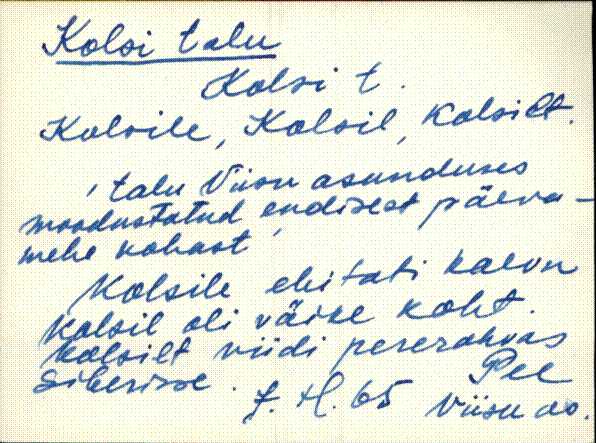 Kolsi talu
Kolsi t.
Kolsile, Kolsil, Kolsilt.
, talu Viisu asunduses
moodustatud endisest päeva-
mehe kohast
Kolsile ehitati kaevu
Kolsil oli väike koht.
Kolsilt viidi pererahvas
Siberisse.
Pee
J. H. 65 Viisu as.